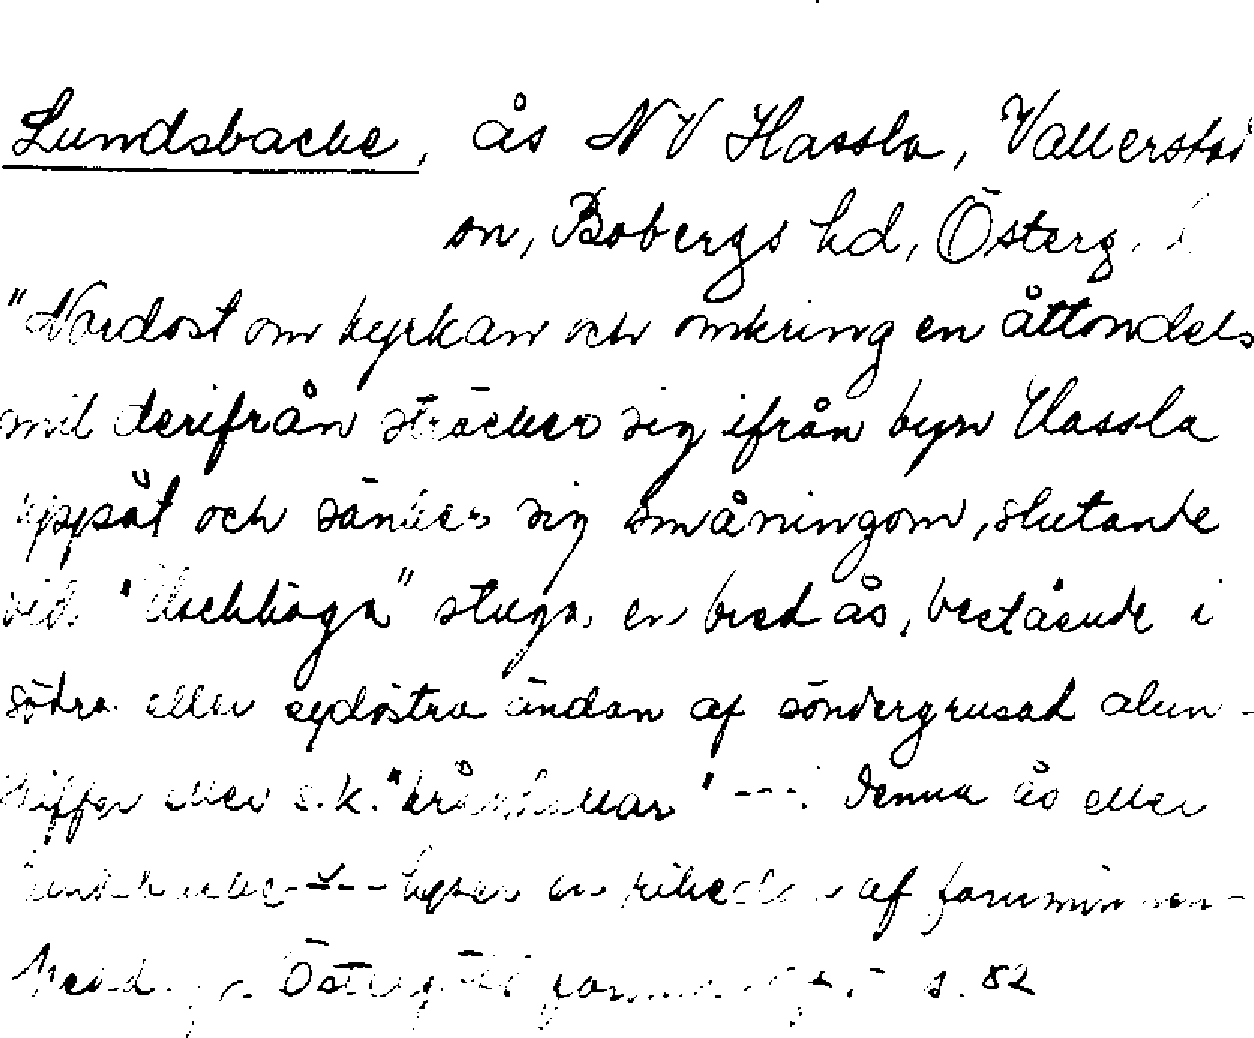 Lundsbacke, ås NV Hassla, Vallerstad
sn, Bobergs hd, Österg.
"Nordost om kyrkan och omkring en åttondels
mil derifrån sträcker sig ifrån byn Hassla
uppåt och sänker sig småningom, slutande
vid stuga en bred ås, bestående i
södra eller sydöstra ändan af söndergrusad alun-
skiffer eller s.k. " --- Denna ås eller
--- hyser en af fornminnen
s. 82